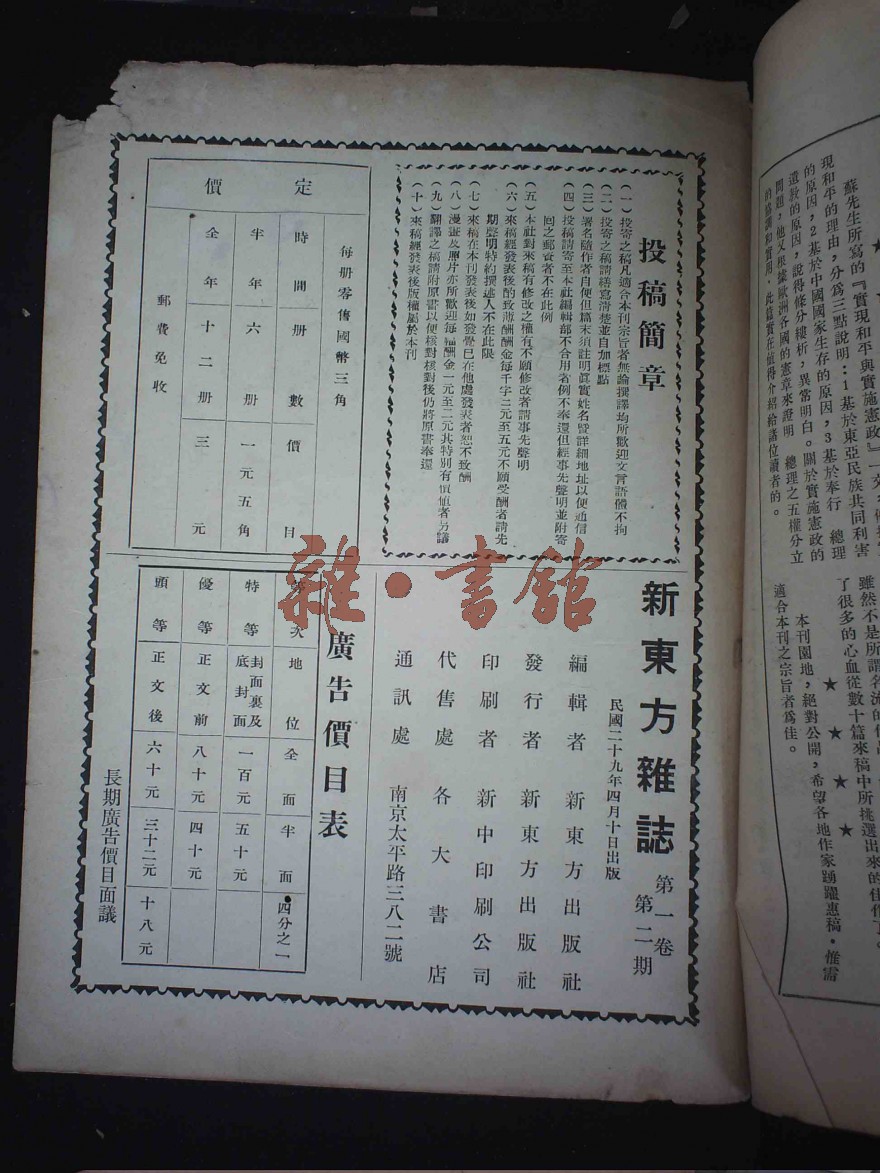 蘇先生所寫的『實現和平與實施憲政』一文
現和平的理由，分為三點說明：1基於東亞民族共同利害
的原因，2基於中國國家生存的原因，3基於奉行　總理
遺教的原因，說得條分縷析，異常明白。關於實施憲政的
問題，他又根據歐洲各國的憲章來證明　總理之五權分立
此篇實在值得介紹給諸位讀者的。
雖然不是所謂名流的作品
了很多的心血從數十篇來稿中所挑選出來的佳作了。
★　★　★　★
本刊園地，絕對公開，希望各地作家踴躍惠稿，惟需
適合本刊之宗旨者為佳。
投稿簡章
（一）投寄之稿凡適合本刊宗旨者無論撰譯均所歡迎文言語體不拘
（二）投寄之稿請繕寫清楚並自加標點
（三）署名隨作者自便但篇末須註明眞實姓名暨詳細地址以便通信
（四）投稿請寄至本社編輯部不合用者例不奉還但經事先聲明並附寄
回之郵資者不在此例
（五）本社對來稿有修改之權有不願修改者請事先聲明
（六）來稿經發表後酌致薄酬酬金每千字二元至五元不願受酬者請先
期聲明特約撰述人不在此限
（七）來稿在本刊發表後如發覺已在他處發表者恕不致酬
（八）漫畫及照片亦所歡迎每幅酬金一元至二元其特別有價値者另議
（九）翻譯之稿請附原書以便核對核對後仍將原書奉還
（十）來稿經發表後版權屬於本刊
定價
每册零售國幣三角
時間　册數　價目
半年　六册　一元五角
全年　十二册　三元
郵費免收
新東方雜誌　第一卷　第二期
民國二十九年四月十日出版
編輯者　新東方出版社
發行者　新東方出版社
印刷者　新中印刷公司
代售處　各大書店
通訊處　南京太平路三八二號
廣告價目表
等次　地位　全面　半面　四分之一
特等　封面裏及底封面　一百元　五十元
優等　正文前　八十元　四十元
頭等　正文後　六十元　三十二元　十八元
長期廣告價目面議
雜·書館